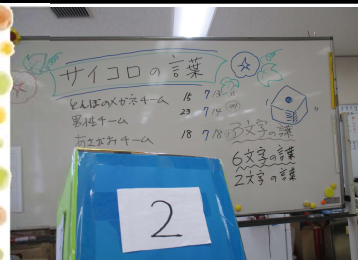 サイコロの言葉
とんぼのメガネチーム 15 7
男性チーム 23 7/14
あさがおチーム 18 7/8
3文字の言葉
6文字の言葉
2文字の言葉
2